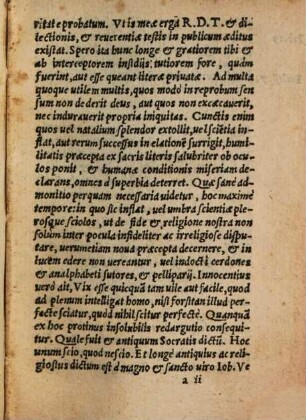 ritate probatum. Vt is meæ ergà R.D.T. & di
lectionis, & reuerentiæ testis in publicum æditus
existat. Spero ita hunc longe & gratiorem tibi &
ab interceptorem insidijs: tutiorem fore, quàm
fuerint, aut esse queant literæ priuatæ. Ad multa
quoque utilem multis, quos modò in reprobum sen
sum non dederit deus, aut quos non excæcauerit,
nec indurauerit propria iniquitas. Cunctis enim
quos uel natalium splendor extollit, uel sciẽtia in-
flat, aut rerum successus in elationẽ surrigit, humi-
litatis præcepta ex sacris literis salubriter ob ocu-
los ponit, & humanæ conditionis miseriam de-
clarans, omnes à superbia deterret. Quæ sanè ad-
monitio perquam necessaria uidetur, hoc maximè
tempore: in quo sic inflat, uel umbra scientiæ ple-
rosque sciolos, ut de fide & religione nostra non
solum inter pocula infideliter ac irreligiose dispu-
tare, uerumetiam noua præcepta decernere, & in
lucem edere non uereantur, uel indocti cerdones
& analphabeti sutores, & pelliparij. Innocentius
uerò ait, Vix esse quicquã tam uile aut facile, quod
ad plenum intelligat homo, nisi forsitan illud per-
fecte sciatur, quòd nihil scitur perfectè. Quanquã
ex hoc protinus insolubilis redargutio consequi-
tur. Quale fuit & antiquum Socratis dictũ. Hoc
unum scio, quòd nescio. Et longè antiquius ac reli-
giosius dictum est à magno & sancto uiro Iob. Ve
a ii